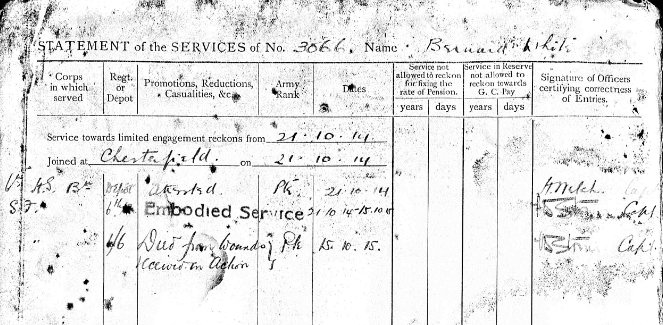 STATEMENT of the SERVICES of No. 3066. Name Bernard White
Corps in which served
Regt. or Depot
Promotions, Reductions, Casualties, &c.
Army Rank
Dates
Service not allowed to reckon for fixing the rate of Pension.
years days
Service in Reserve not allowed to reckon towards G. C. Pay
years days
Signature of Officers certifying correctness of Entries.
Service towards limited engagement reckons from 21.10.14
Joined at Chesterfield. on 21.10.14
Depot Attested. Pte. 21.10.14
S.F. 6th Embodied Service 21.10.14-15.10.15 Capt
" 6 Died from Wounds Pte 15.10.15. Capt
received in Action